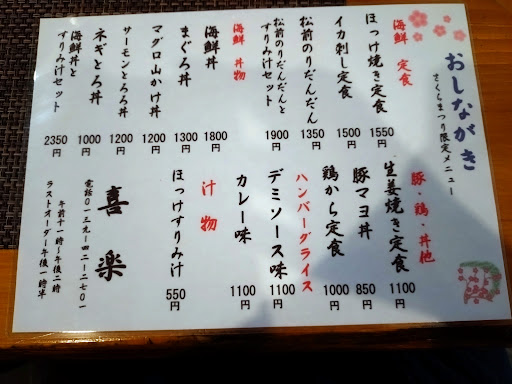 おしながき
さくらまつり限定メニュー
海鮮 定食
ほっけ焼き定食 1550円
イカ刺し定食 1500円
松前のりだんだん 1350円
松前のりだんだんと
すりみ汁セット 1900円
海鮮 丼物
海鮮丼 1800円
まぐろ丼 1300円
マグロ山かけ丼 1200円
サーモンとろろ丼 1200円
ネギとろ丼 1000円
海鮮丼と
すりみ汁セット 2350円
豚・鶏・丼他
生姜焼き定食 1100円
豚マヨ丼 850円
鶏から定食 1000円
ハンバーグライス
デミソース味 1100円
カレー味 1100円
汁物
ほっけすりみ汁 550円
喜楽
電話０１３９ー４２ー２７０１
午前十一時〜午後二時
ラストオーダー午後一時半